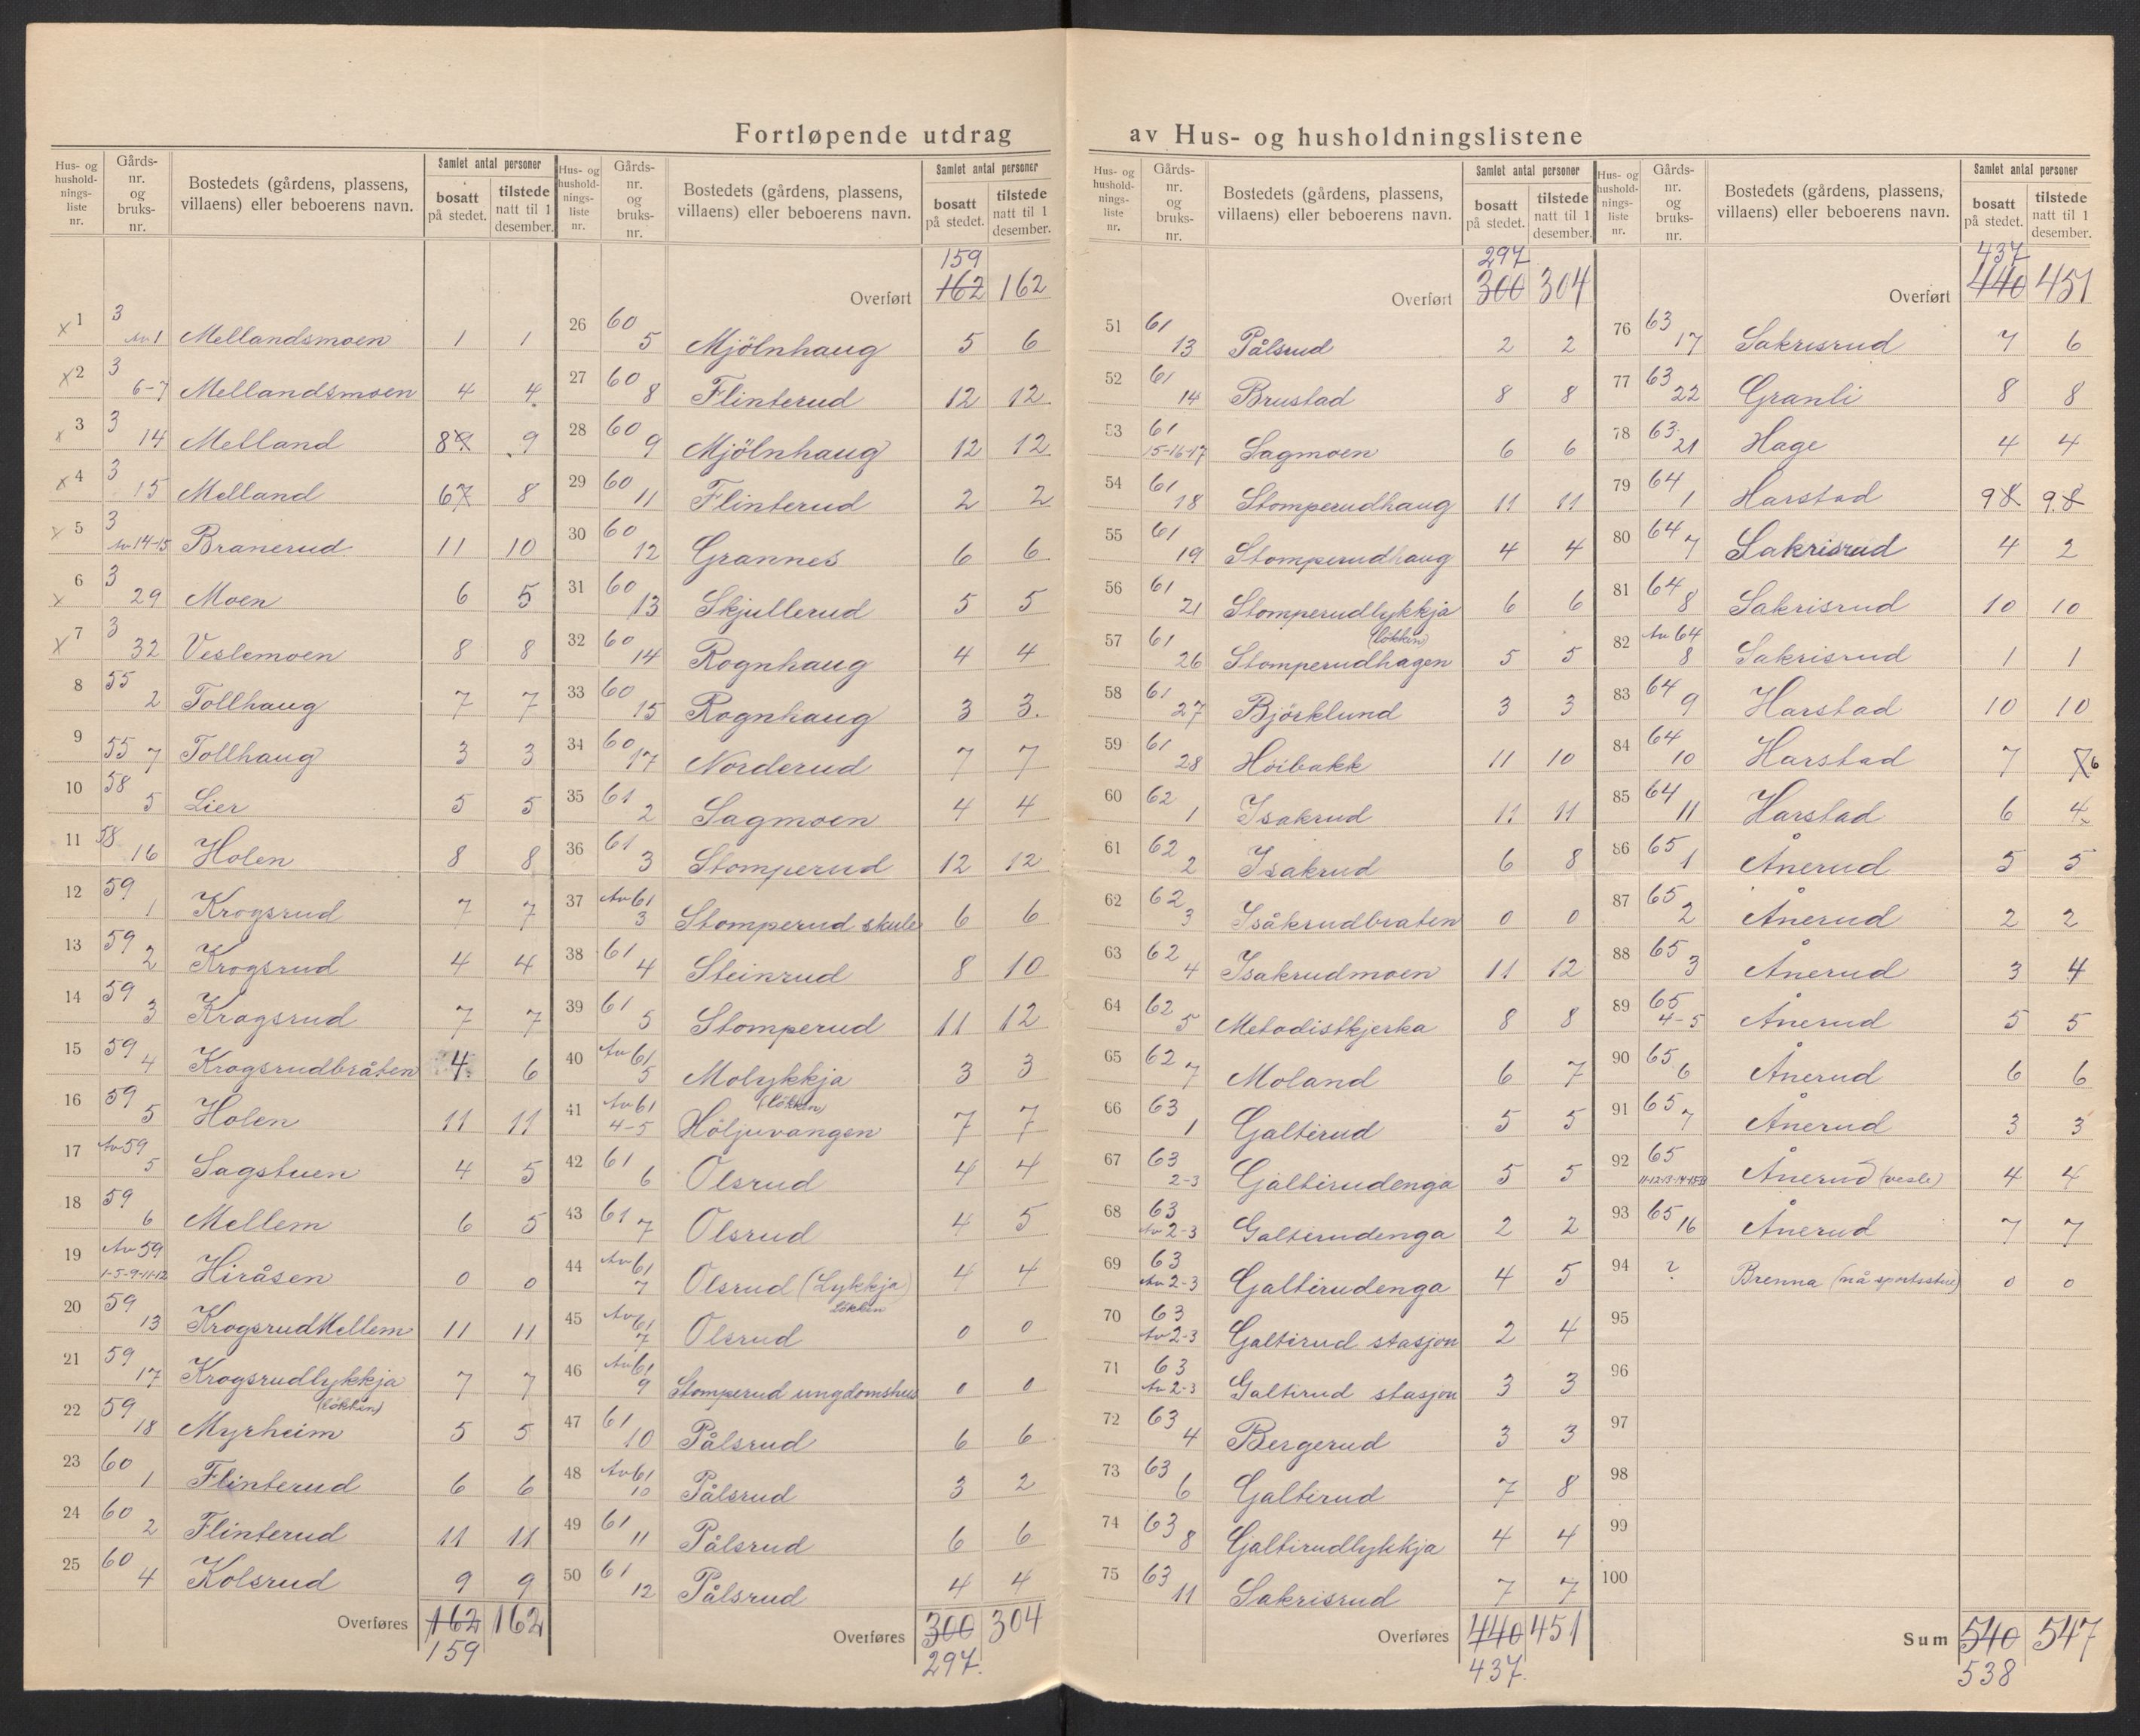 Fortløpende utdrag av Hus- og husholdningslistene
Hus- og husholdnings-liste nr. | Gårds-nr. og bruks-nr. | Bostedets (gårdens, plassens, villaens) eller beboerens navn. | Samlet antal personer | bosatt på stedet. | tilstede natt til 1 desember.
x 1 | 3 Av 1 | Mellandsmoen | 1 | 1
x 2 | 3 6-7 | Mellandsmoen | 4 | 4
x 3 | 3 14 | Melland | 8 9 | 9
x 4 | 3 15 | Melland | 6 7 | 8
x 5 | 3 Av 14-15 | Branerud | 11 | 10
x 6 | 3 29 | Moen | 6 | 5
x 7 | 3 32 | Veslemoen | 8 | 8
8 | 55 2 | Tollhaug | 7 | 7
9 | 55 7 | Tollhaug | 3 | 3
10 | 58 5 | Lier | 5 | 5
11 | 58 16 | Holen | 8 | 8
12 | 59 1 | Krogsrud | 7 | 7
13 | 59 2 | Krogsrud | 4 | 4
14 | 59 3 | Krogsrud | 7 | 7
15 | 59 4 | Krogsrudbråten | 4 | 6
16 | 59 5 | Holen | 11 | 11
17 | Av 59 5 | Sagstuen | 4 | 5
18 | 59 6 | Mellem | 6 | 5
19 | Av 59 1-5-9-11-12 | Hiråsen | 0 | 0
20 | 59 13 | Krogsrud Mellem | 11 | 11
21 | 59 17 | Krogsrudlykkja (Lökken) | 7 | 7
22 | 59 18 | Myrheim | 5 | 5
23 | 60 1 | Flinterud | 6 | 6
24 | 60 2 | Flinterud | 11 | 11
25 | 60 4 | Kolsrud | 9 | 9
Overføres | 162 | 162
159
Hus- og husholdnings-liste nr. | Gårds-nr. og bruks-nr. | Bostedets (gårdens, plassens, villaens) eller beboerens navn. | Samlet antal personer | bosatt på stedet. | tilstede natt til 1 desember.
159
Overført | 162 | 162
26 | 60 5 | Mjölnhaug | 5 | 6
27 | 60 8 | Flinterud | 12 | 12
28 | 60 9 | Mjölnhaug | 12 | 12
29 | 60 11 | Flinterud | 2 | 2
30 | 60 12 | Grannes | 6 | 6
31 | 60 13 | Skjullerud | 5 | 5
32 | 60 14 | Rognhaug | 4 | 4
33 | 60 15 | Rognhaug | 3 | 3
34 | 60 17 | Norderud | 7 | 7
35 | 61 2 | Sagmoen | 4 | 4
36 | 61 3 | Stomperud | 12 | 12
37 | Av 61 3 | Stomperud skule | 6 | 6
38 | 61 4 | Steinrud | 8 | 10
39 | 61 5 | Stomperud | 11 | 12
40 | Av 61 5 | Molykkja (Lökken) | 3 | 3
41 | Av 61 4-5 | Höljuvangen | 7 | 7
42 | 61 6 | Olsrud | 4 | 4
43 | 61 7 | Olsrud | 4 | 5
44 | Av 61 7 | Olsrud (Lykkja) Lökken | 4 | 4
45 | Av 61 7 | Olsrud | 0 | 0
46 | Av 61 9 | Stomperud ungdomshus | 0 | 0
47 | 61 10 | Pålsrud | 6 | 6
48 | Av 61 10 | Pålsrud | 3 | 2
49 | 61 11 | Pålsrud | 6 | 6
50 | 61 12 | Pålsrud | 4 | 4
Overføres | 300 | 304
297.
Hus- og husholdnings-liste nr. | Gårds-nr. og bruks-nr. | Bostedets (gårdens, plassens, villaens) eller beboerens navn. | Samlet antal personer | bosatt på stedet. | tilstede natt til 1 desember.
297
Overført | 300 | 304
51 | 61 13 | Pålsrud | 2 | 2
52 | 61 14 | Brustad | 8 | 8
53 | 61 15-16-17 | Sagmoen | 6 | 6
54 | 61 18 | Stomperudhaug | 11 | 11
55 | 61 19 | Stomperudhaug | 4 | 4
56 | 61 21 | Stomperudlykkja (Lökken) | 6 | 6
57 | 61 26 | Stomperudhagen | 5 | 5
58 | 61 27 | Björklund | 3 | 3
59 | 61 28 | Høibakk | 11 | 10
60 | 62 1 | Isakrud | 11 | 11
61 | 62 2 | Isakrud | 6 | 8
62 | 62 3 | Isåkrudbraten | 0 | 0
63 | 62 4 | Isakrudmoen | 11 | 12
64 | 62 5 | Metodistkjerka | 8 | 8
65 | 62 7 | Moland | 6 | 7
66 | 63 1 | Galterud | 5 | 5
67 | 63 2-3 | Galterudenga | 5 | 5
68 | 63 Av 2-3 | Galterudenga | 2 | 2
69 | 63 Av 2-3 | Galterudenga | 4 | 5
70 | 63 Av 2-3 | Galterud stasjon | 2 | 4
71 | 63 Av 2-3 | Galterud stasjon | 3 | 3
72 | 63 4 | Bergerud | 3 | 3
73 | 63 6 | Galterud | 7 | 8
74 | 63 8 | Galterudlykkja | 4 | 4
75 | 63 11 | Sakrisrud | 7 | 7
Overføres | 440 | 451
437.
Hus- og husholdnings-liste nr. | Gårds-nr. og bruks-nr. | Bostedets (gårdens, plassens, villaens) eller beboerens navn. | Samlet antal personer | bosatt på stedet. | tilstede natt til 1 desember.
437
Overført | 440 | 451
76 | 63 17 | Sakrisrud | 7 | 6
77 | 63 22 | Granli | 8 | 8
78 | 63 21 | Hage | 4 | 4
79 | 64 1 | Harstad | 9 8 | 9 8
80 | 64 7 | Sakrisrud | 4 | 2
81 | 64 8 | Sakrisrud | 10 | 10
82 | Av 64 8 | Sakrisrud | 1 | 1
83 | 64 9 | Harstad | 10 | 10
84 | 64 10 | Harstad | 7 | 7 6
85 | 64 11 | Harstad | 6 | 4
86 | 65 1 | Ånerud | 5 | 5
87 | 65 2 | Ånerud | 2 | 2
88 | 65 3 | Ånerud | 3 | 4
89 | 65 4-5 | Ånerud | 5 | 5
90 | 65 6 | Ånerud | 6 | 6
91 | 65 7 | Ånerud | 3 | 3
92 | 65 | Ånerud (vesle) | 4 | 4
93 | 65 16 | Ånerud | 7 | 7
94 | ? | Brenna (nå sportsstue) | 0 | 0
95
96
97
98
99
100
Sum | 540 | 547
538